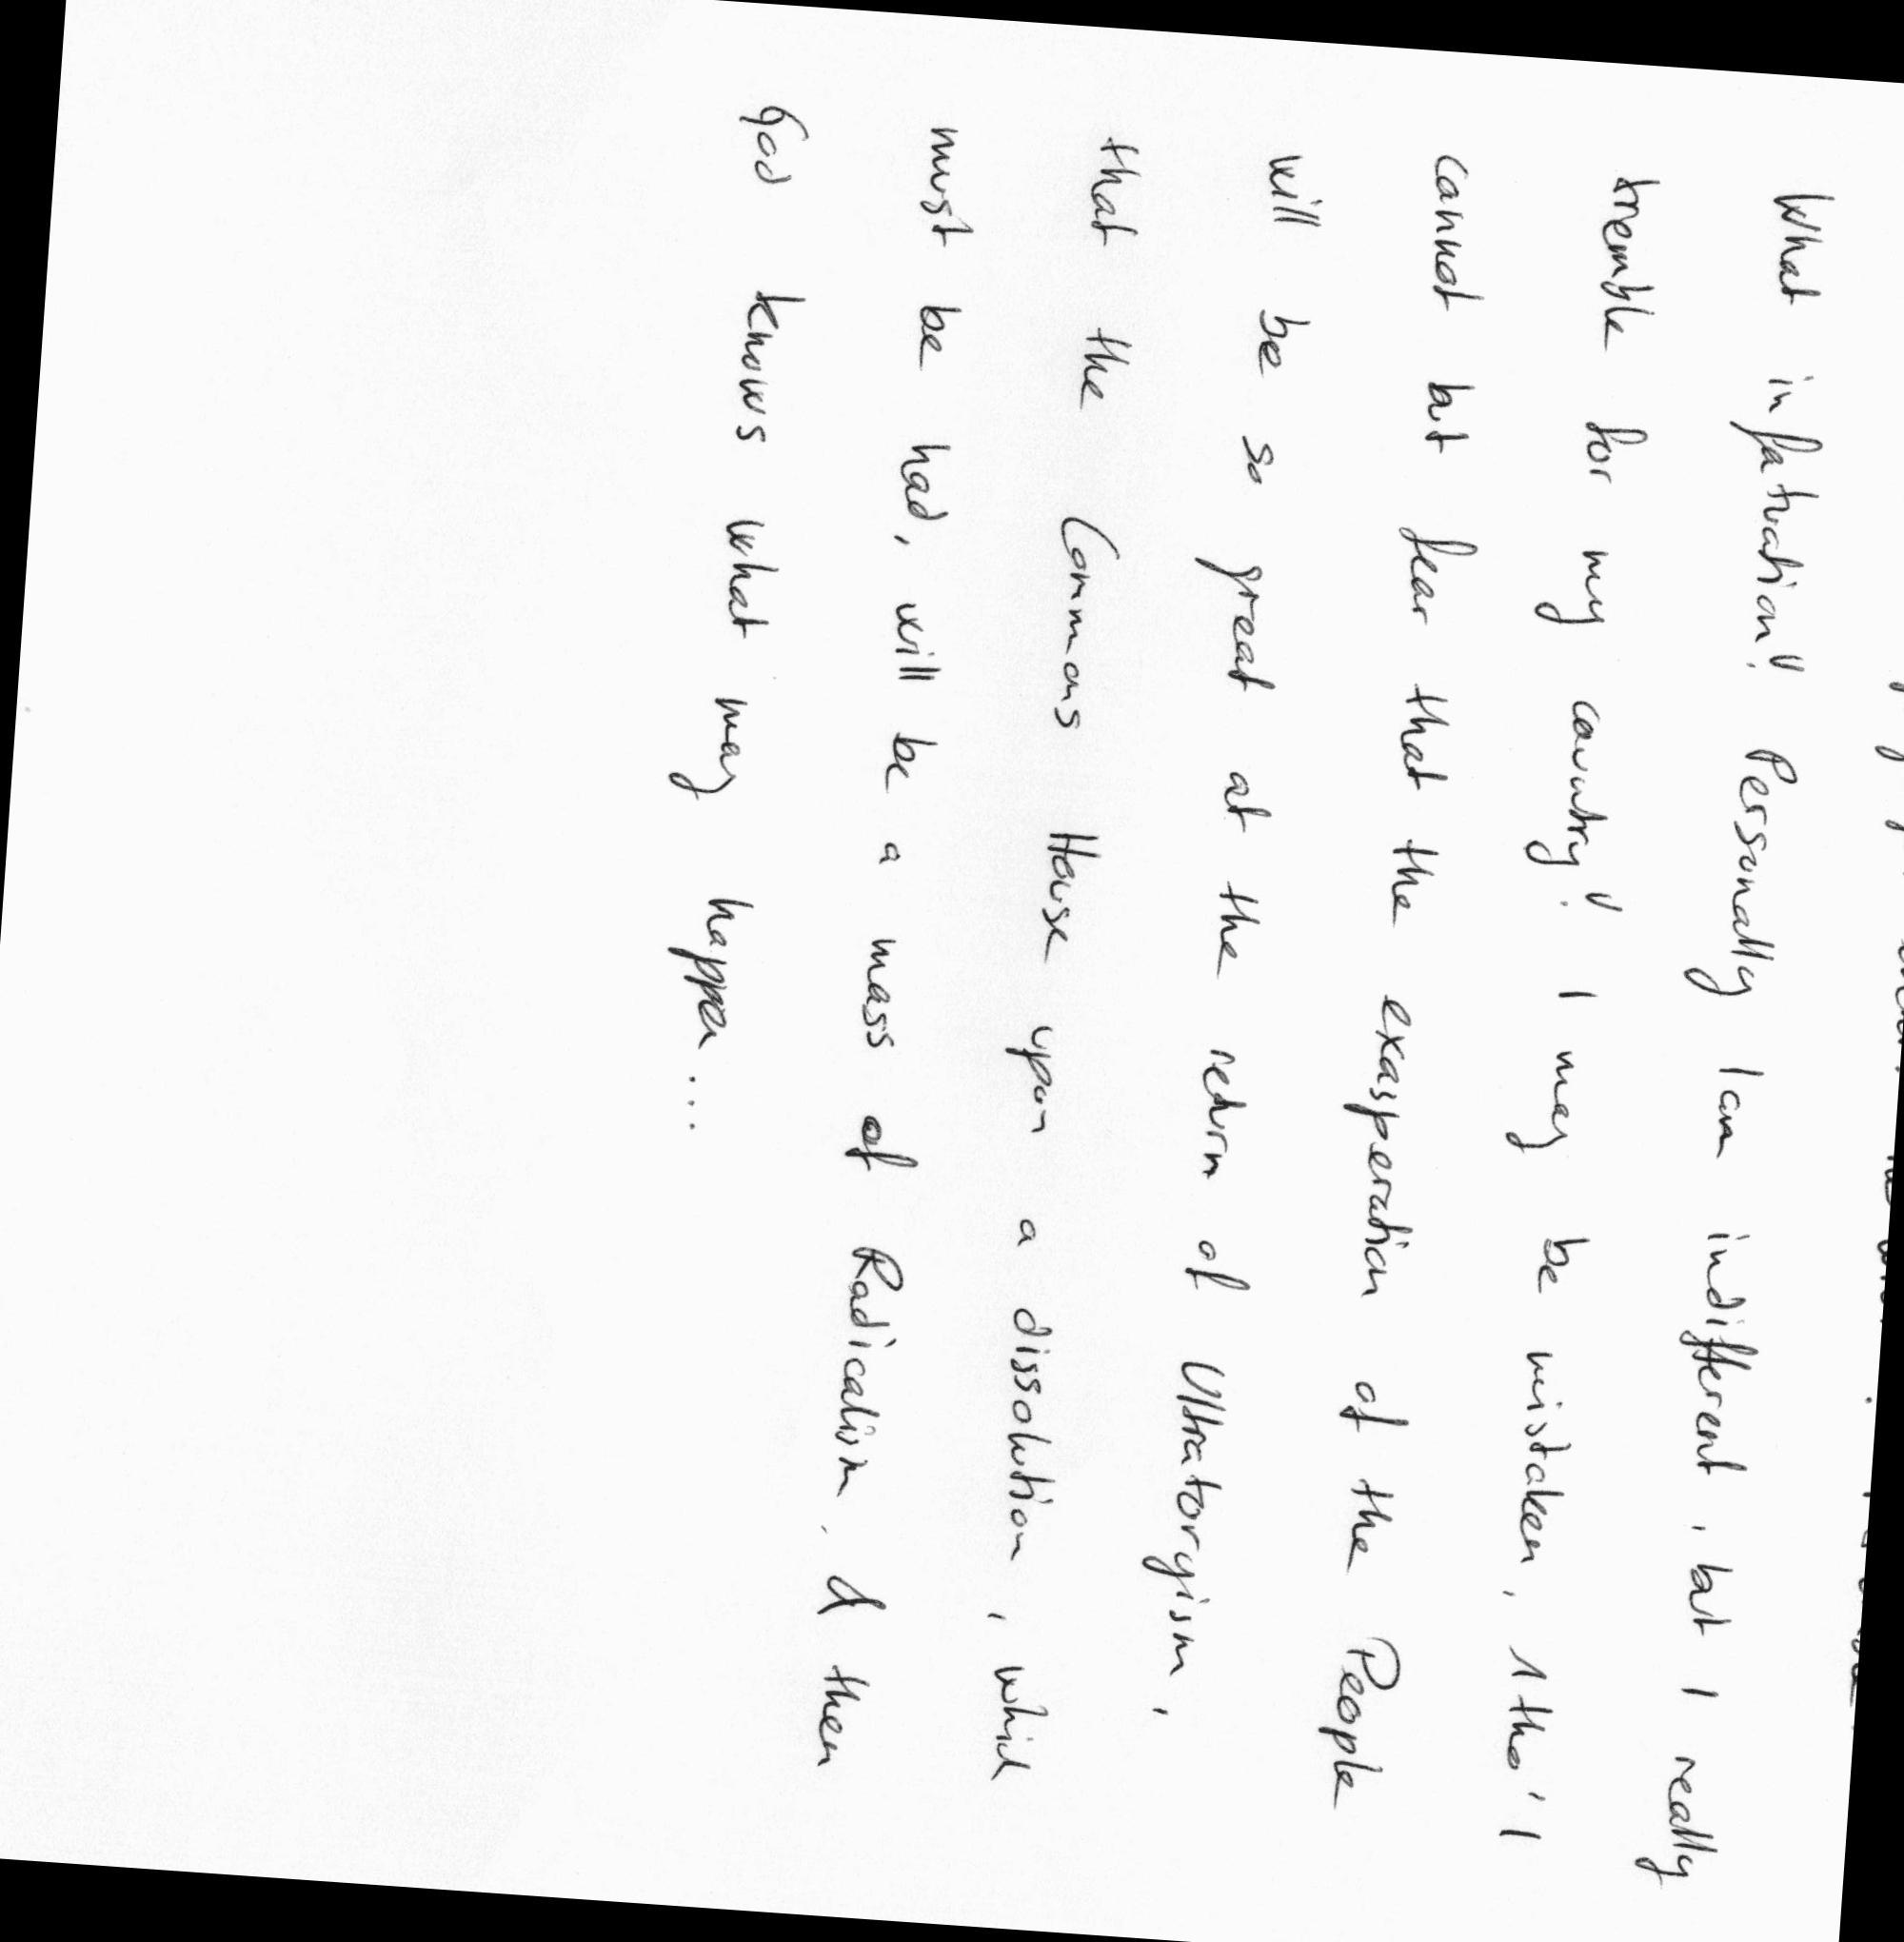 What infatuation! Personally I am indifferent, but I really
tremble for my country! I may be mistaken, 1 tho' I
cannot but fear that the exasperation of the People
will be so great at the return of Ultratoryism,
that the Commons House upon a dissolution, which
must be had, will be a mass of Radicalism, & then
God knows what may happen...